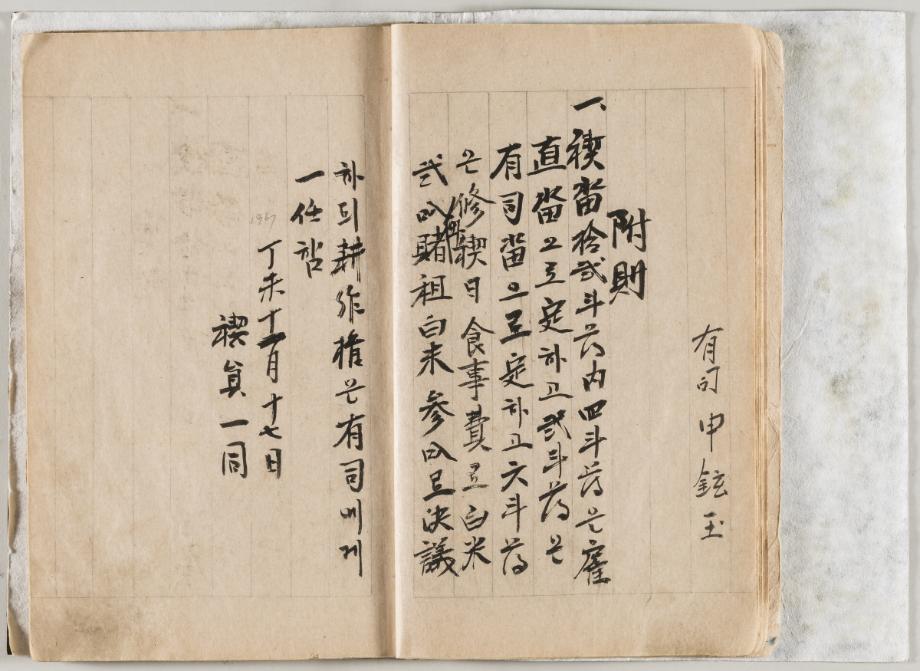 有司 申鉉玉
附則
一、禊畓拾弐斗落内四斗落은雇
直畓으로定하고弐斗落은
有司畓으로定하고六斗落
은修禊日食事費로白米
弐叺賭租白米参叺로決議
하되耕作権은有司에게
一任함
1967
丁未十一月十七日
禊員一同